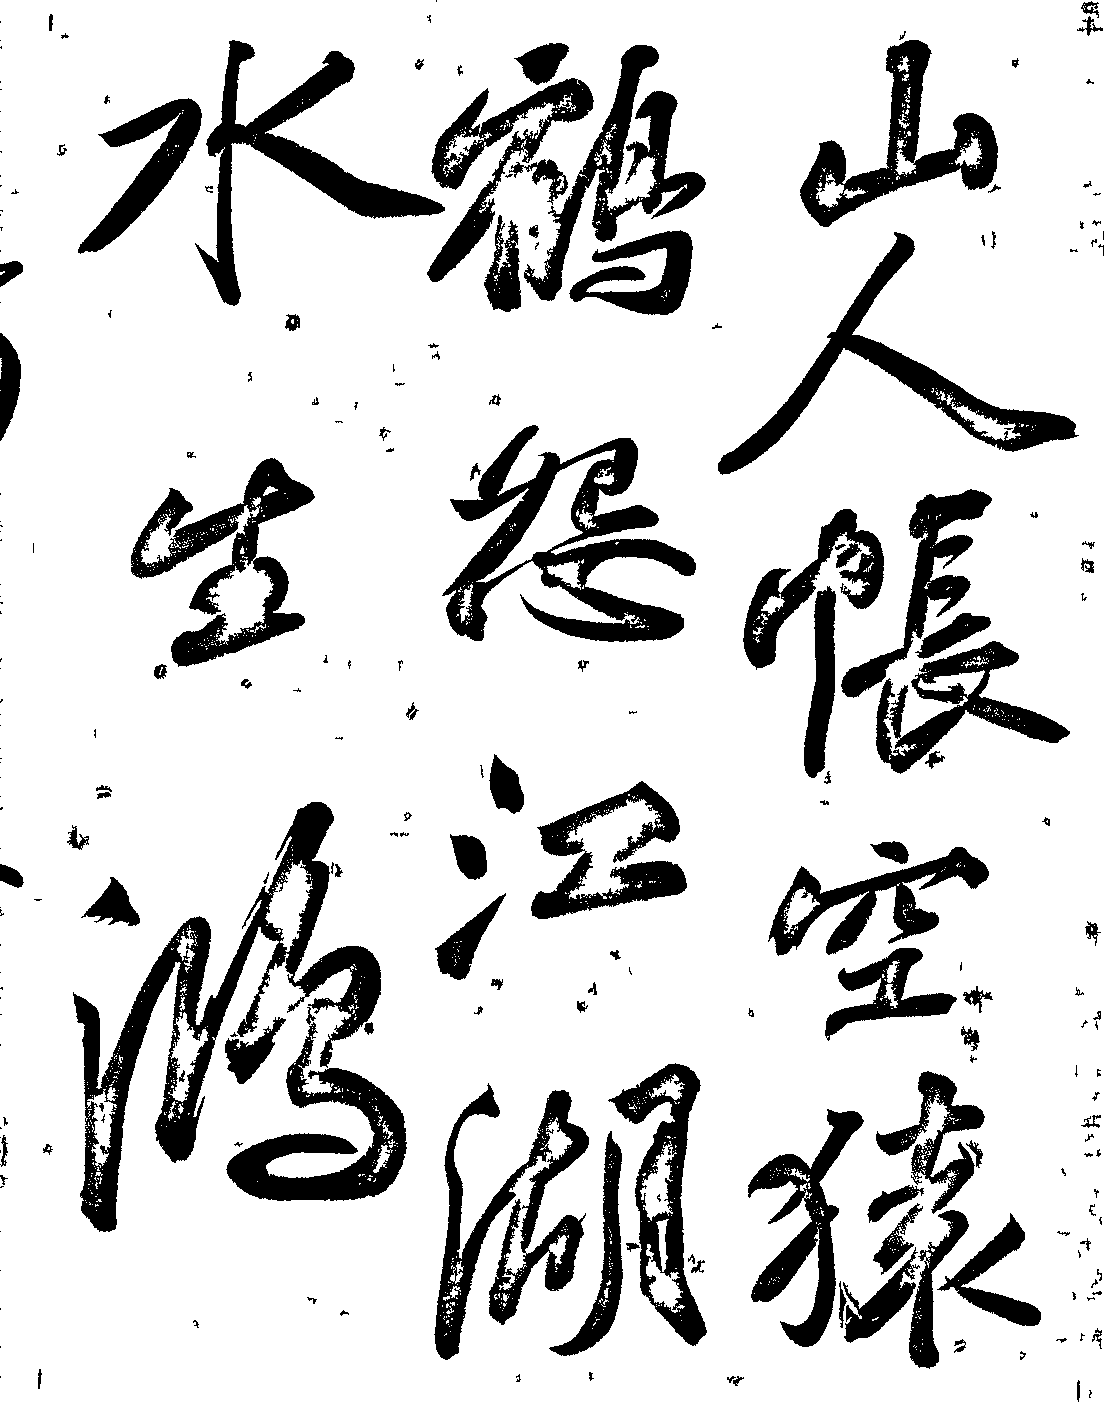 山人帳空猿
鶴怨江湖
水生鴻